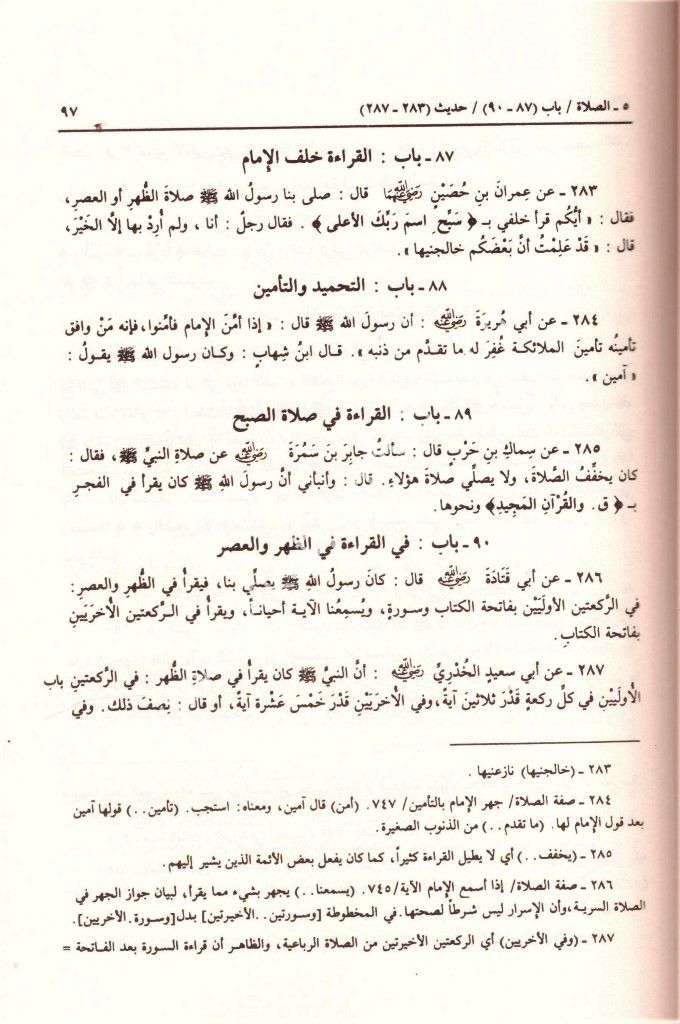 ٥ ـ الصلاة / باب (٨٧ ـ ٩٠) / حديث (٢٨٣ ـ ٢٨٧) ٩٧
٨٧ ـ باب : القراءة خلف الإمام
٢٨٣ ـ عن عِمرانَ بنِ حُصَيْنٍ رضي الله عنهما قال : صلى بنا رسولُ الله ﷺ صلاةَ الظُهرِ أو العصرِ،
فقال : « أيُّكم قرأ خلفي بـ ﴿ سَبِّحِ اسمَ رَبِّكَ الأعلى ﴾ . فقال رجلٌ : أنا ، ولم أُرِدْ بها إلَّا الخَيْرَ،
قال : « قَدْ عَلِمْتُ أنَّ بَعْضَكُم خالجنيها» .
٨٨ ـ باب : التحميد والتأمين
٢٨٤ ـ عن أبي هُريرَةَ رضي الله عنه : أن رسولَ الله ﷺ قال : « إذا أمَّنَ الإمام فأمِّنوا، فإنه مَنْ وافق
تأمينُه تأمينَ الملائكة غُفِرَ له ما تقدَّم من ذنبه ». قال ابنُ شهابٍ : وكان رسول الله ﷺ يقولُ :
« آمين » .
٨٩ ـ باب : القراءة في صلاة الصبح
٢٨٥ ـ عن سِماكِ بنِ حَرْبٍ قال : سألتُ جابِرَ بنَ سَمُرَةَ رضي الله عنه عن صلاةِ النبيِّ ﷺ، فقال :
كان يخفِّفُ الصَّلاةَ، ولا يصلِّي صلاةَ هؤلاءِ. قال : وأنبأني أنَّ رسولَ اللهِ ﷺ كان يقرأ في الفجرِ
بـ ﴿ ق . والقُرْآنِ المَجِيدِ﴾ ونحوها.
٩٠ ـ باب : في القراءة في الظهر والعصر
٢٨٦ ـ عن أبي قَتَادَةَ رضي الله عنه قال : كانَ رسولُ اللهِ ﷺ يصلِّي بنا، فيقرأ في الظُهرِ والعصرِ:
في الرَّكعتين الأولَيَيْن بفاتحة الكتاب وسورةٍ، ويُسمِعُنا الآيـة أحياناً، ويقرأ في الـرَّكعتين الأُخرَيَيْنِ
بفاتحة الكتابِ.
٢٨٧ ـ عن أبي سعيدٍ الخُدْرِيِّ رضي الله عنه : أنَّ النبيَّ ﷺ كان يقرأ في صلاةِ الظُهر : في الرَّكعتينِ باب
الأولَيَيْنِ في كلِّ ركعةٍ قَدْرَ ثلاثينَ آيةً،وفي الأخرَيَيْنِ قَدْرَ خَمْسَ عَشْرة آيةً، أو قال : نِصفَ ذلك. وفي
٢٨٣ ـ (خالجنيها) نازعنيها .
٢٨٤ ـ صفة الصلاة/ جهر الإمام بالتأمين/ ٧٤٧. (أمن) قال آمين، ومعناه: استجب. (تأمين..) قولها آمين
بعد قول الإمام لها. (ما تقدم . .) من الذنوب الصغيرة.
٢٨٥ ـ (يخفف. .) أي لا يطيل القراءة كثيراً، كما كان يفعل بعض الأئمة الذين يشير إليهم.
٢٨٦ ـ صفة الصلاة/ إذا أسمع الإمام الآية/ ٧٤٥. (يسمعنا. .) يجهر بشيء مما يقرأ، لبيان جواز الجهر في
الصلاة السرية،وأن الإسرار ليس شرطاً لصحتها.في المخطوطة [وسورتين. .الأخيرتين] بدل[وسورة.الأخريين].
٢٨٧ ـ (وفي الأخريين) أي الركعتين الأخيرتين من الصلاة الرباعية، والظاهر أن قراءة السورة بعد الفاتحة =